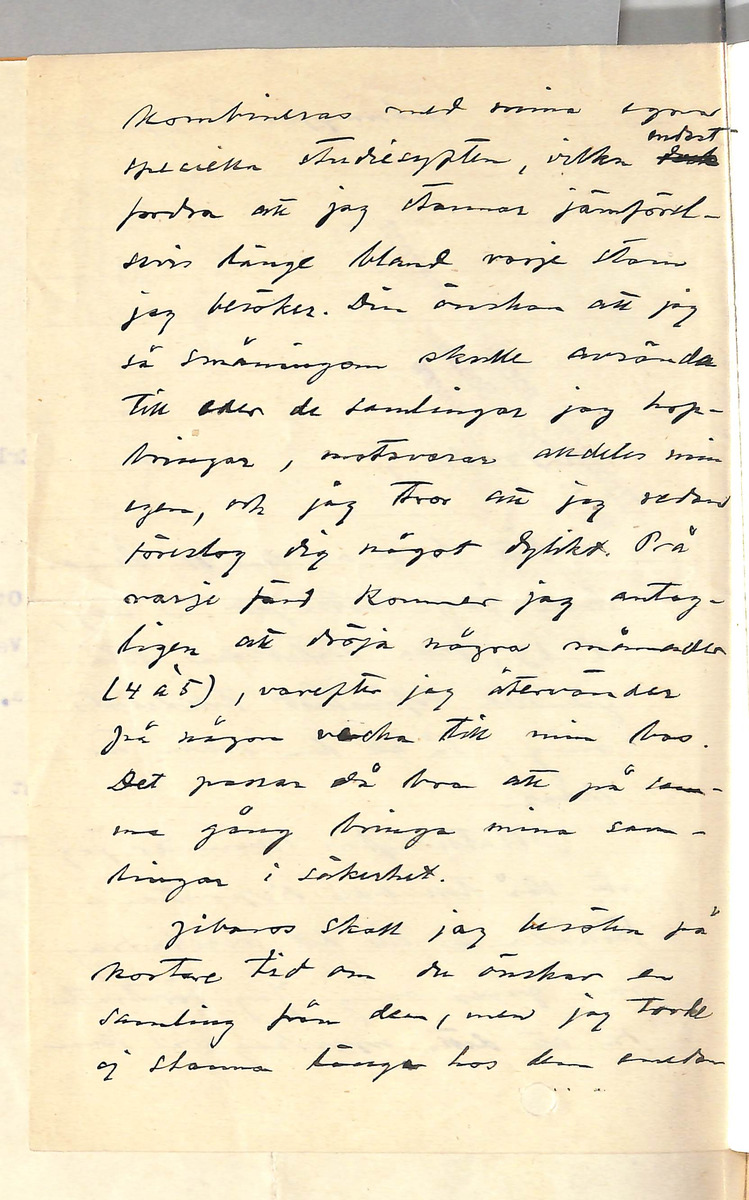 kombineras med mina egna
endast
speciella studiesyften, vilka dock
fordra att jag stannar jämförel-
sevis länge bland varje stam
jag besöker. Din önskan att jag
så småningom skulle avsända
till eder de samlingar jag hop-
bringar, motsvarar alldeles min
egen, och jag tror att jag redan
föreslog dig något dylikt. På
varje färd kommer jag antag-
ligen att dröja några månader
(4 à 5), varefter jag återvänder
på någon vecka till min bas.
Det passar då bra att på sam-
ma gång bringa mina sam-
lingar i säkerhet.
Jibaros skall jag besöka på
kortare tid om du önskar en
samling från dem, men jag torde
ej stanna länge hos dem emedan